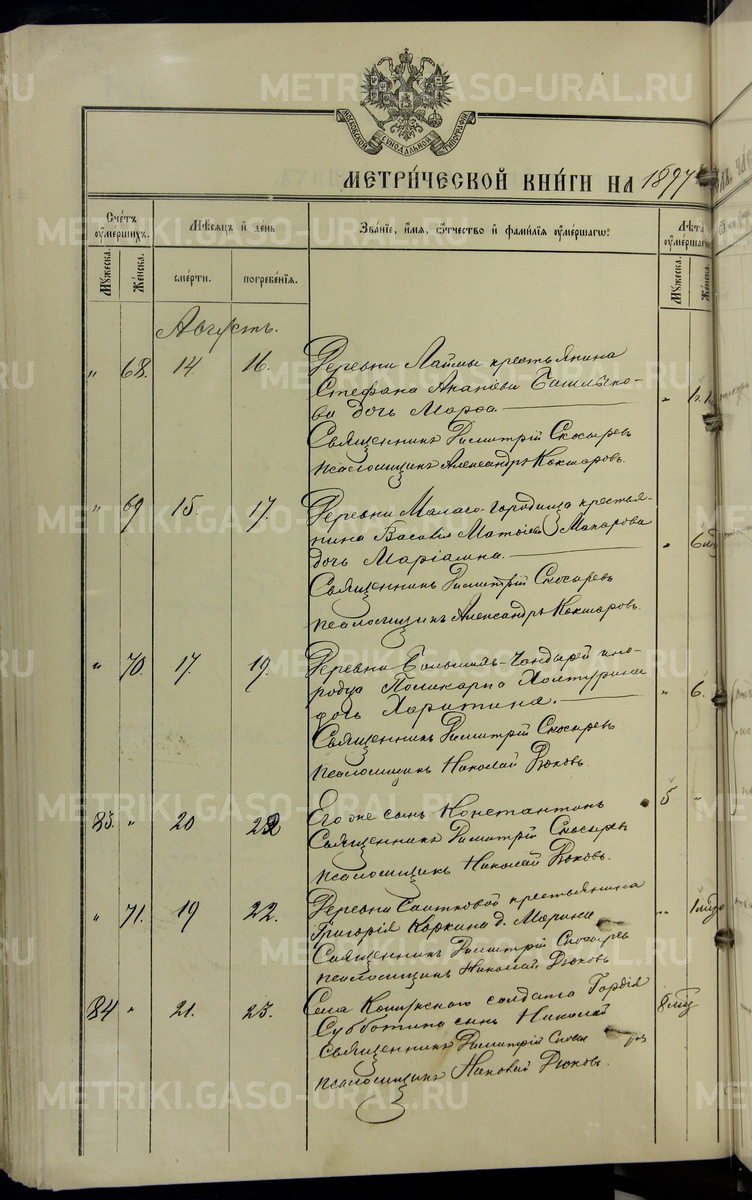 МОСКОВСКОЙ СѴНОДАЛЬНОЙ ТИПОГРАФІИ
МЕТРИ́ЧЕСКОЙ КНИ́ГИ НА 1897
Сче́тъ ᲂу҆ме́ршихъ.
Мꙋ́жеска.
Же́нска.
Мѣ́сяцъ и҆ де́нь
сме́рти.
погребе́нїѧ.
Зва́нїе, и҆́мѧ, ѻ҆́тчество и҆ фамилїѧ ᲂу҆ме́ршагѡ:
Лѣ́та ᲂу҆ме́ршагѡ
Мꙋ́жеска.
Же́нска.
Августъ.
" 68. 14 16. Деревни Лаймы крестьянина
Стефана Ананіева Башлыко-
ва дочь Марѳа.
Священникъ Димитрій Скосыревъ
псаломщикъ Александръ Кокшаровъ.
" 69 15. 17. Деревни Малаго-городища крестья-
нина Василія Матѳіева Макарова " 6
дочь Маріамна.
Священникъ Димитрій Скосыревъ
псаломщикъ Александръ Кокшаровъ.
" 70. 17. 19. Деревни Большихъ-Чандырей ино-
родца Поликарпа Холтурина " 6.
дочь Харитина.
Священникъ Димитрій Скосыревъ
псаломщикъ Николай Дюковъ.
83. " 20 22 Его же сынъ Константинъ 5 "
Священникъ Димитрій Скосыревъ
псаломщикъ Николай Дюковъ.
" 71. 19 22. Деревни Саитковой крестьянина
Григорія Коркина д. Марина
Священникъ Димитрій Скосыревъ
псаломщикъ Николай Дюковъ
84 " 21. 23. Села солдата Гордія 8
Субботина сынъ Николай
Священникъ Димитрій
псаломщикъ Николай Дюковъ.
METRIKI.GASO-URAL.RU